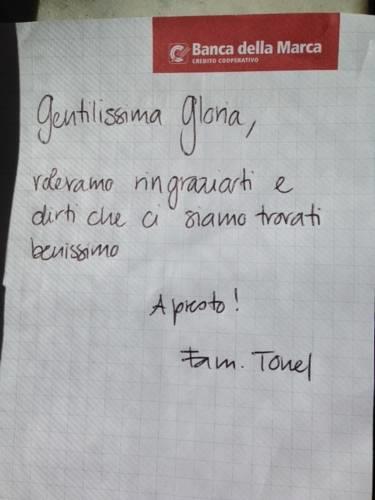 Banca della Marca
CREDITO COOPERATIVO
Gentilissima Gloria,
volevamo ringraziarti e
dirti che ci siamo trovati
benissimo
A presto!
Fam. Tonel